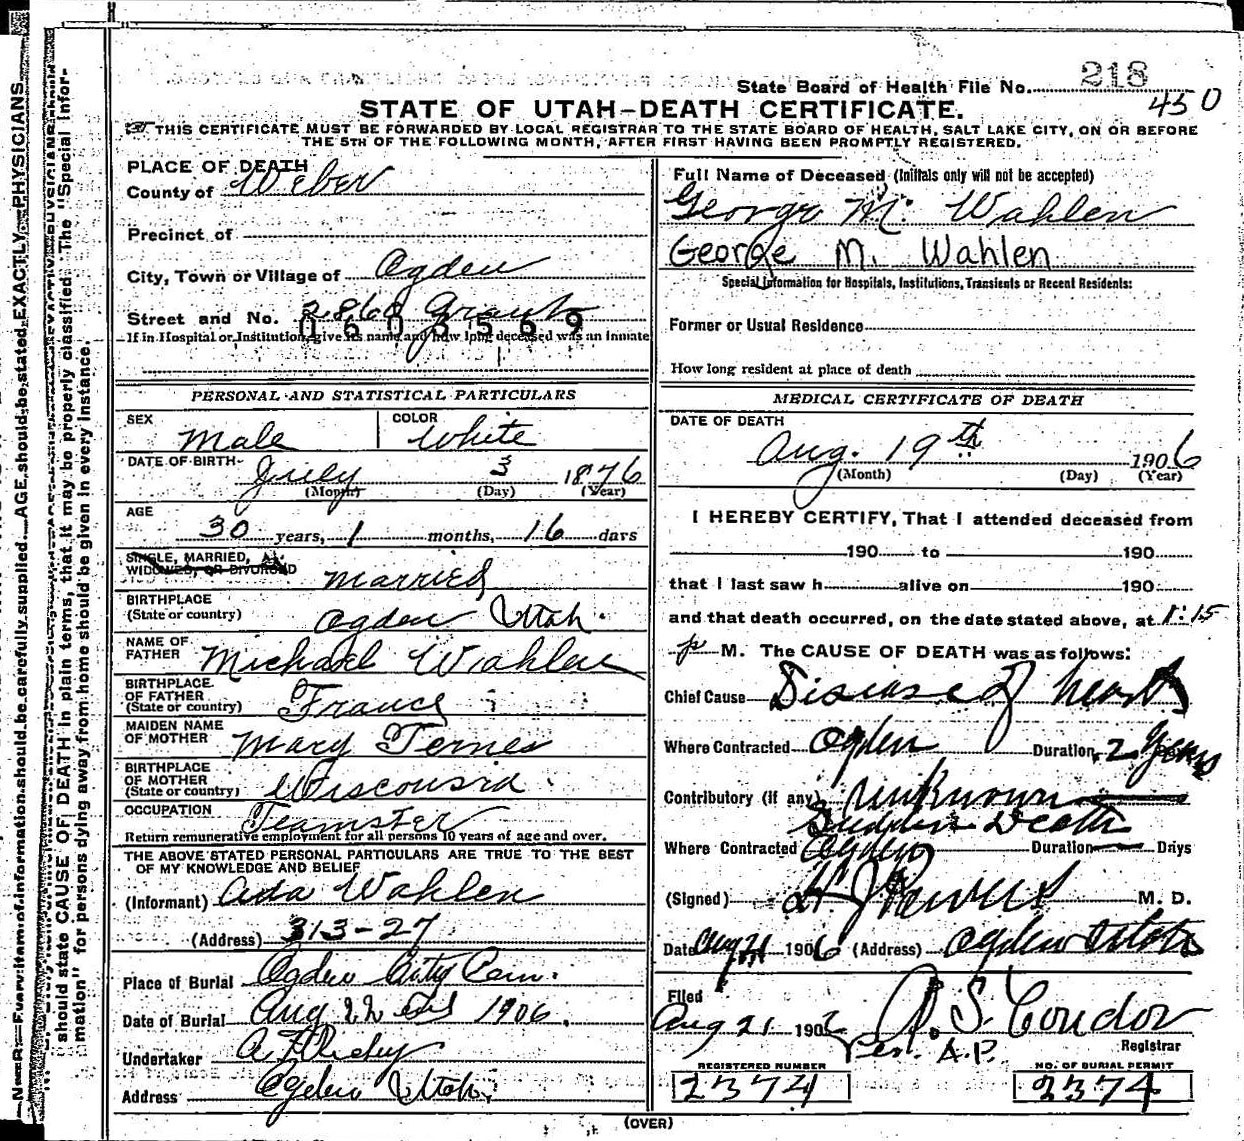 State Board of Health File No. 218
450
STATE OF UTAH-DEATH CERTIFICATE.
THIS CERTIFICATE MUST BE FORWARDED BY LOCAL REGISTRAR TO THE STATE BOARD OF HEALTH, SALT LAKE CITY, ON OR BEFORE
THE 5TH OF THE FOLLOWING MONTH, AFTER FIRST HAVING BEEN PROMPTLY REGISTERED.
PLACE OF DEATH
County of Weber
Precinct of
City, Town or Village of Ogden
Street and No. 2860 Grant
0603569
If in Hospital or Institution, give its name and how long deceased was an Inmate
PERSONAL AND STATISTICAL PARTICULARS
SEX Male COLOR White
DATE OF BIRTH July 3 1876
(Month) (Day) (Year)
AGE
30 years, 1 months, 16 days
SINGLE, MARRIED,
WIDOWED, OR DIVORCED married
BIRTHPLACE
(State or country) Ogden Utah.
NAME OF
FATHER Michael Wahlen
BIRTHPLACE
OF FATHER
(State or country) France
MAIDEN NAME
OF MOTHER Mary Ternes
BIRTHPLACE
OF MOTHER
(State or country) Wisconsin
OCCUPATION Teamster
Return remunerative employment for all persons 10 years of age and over.
THE ABOVE STATED PERSONAL PARTICULARS ARE TRUE TO THE BEST
OF MY KNOWLEDGE AND BELIEF
(Informant) Ada Wahlen
(Address) 313-27
Place of Burial Ogden City Cem.
Date of Burial Aug 22 1906.
Undertaker
Address Ogden Utah.
Full Name of Deceased (Initials only will not be accepted)
George M. Wahlen
George M. Wahlen
Special Information for Hospitals, Institutions, Transients or Recent Residents:
Former or Usual Residence
How long resident at place of death
MEDICAL CERTIFICATE OF DEATH
DATE OF DEATH
Aug. 19th 1906
(Month) (Day) (Year)
I HEREBY CERTIFY, That I attended deceased from
190 to 190
that I last saw h alive on 190
and that death occurred, on the date stated above, at 1:15
p M. The CAUSE OF DEATH was as follows:
Chief Cause Disease of heart
Where Contracted Ogden Duration 2 Years
Contributory (if any) Unknown
Sudden Death
Where Contracted Ogden Duration Days
(Signed) M. D.
Date Aug 21 1906 (Address) Ogden Utah
Filed
Aug 21 190 S. Condor
Per. A.P. Registrar
REGISTERED NUMBER
2374
NO. OF BURIAL PERMIT
2374
(OVER)
N. B.—Every item of information should be carefully supplied. AGE should be stated EXACTLY. PHYSICIANS
should state CAUSE OF DEATH in plain terms, that it may be properly classified. The "Special Infor-
mation" for persons dying away from home should be given in every instance.